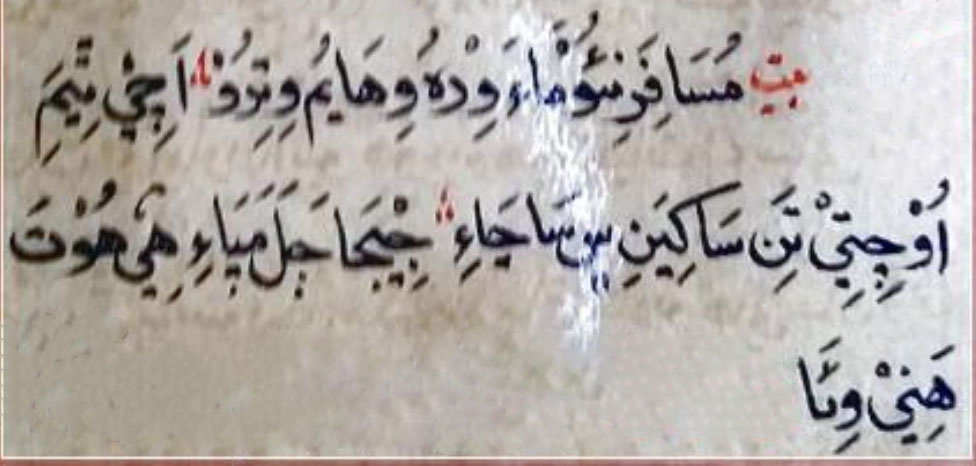 بيت مُسَافِرَنِئُوْمَاءِ وِدْهُ وِهَايُمُ وِتِرُوْ اَچِيْ نِيَمَ
اُوْچِتِيْ تَنِ سَاكِيَنِ سَاجَاءِ جِيْجَا جَلَ مَيَاءِ هِيْ هُوْتَ
هَنِيْ وِئَا